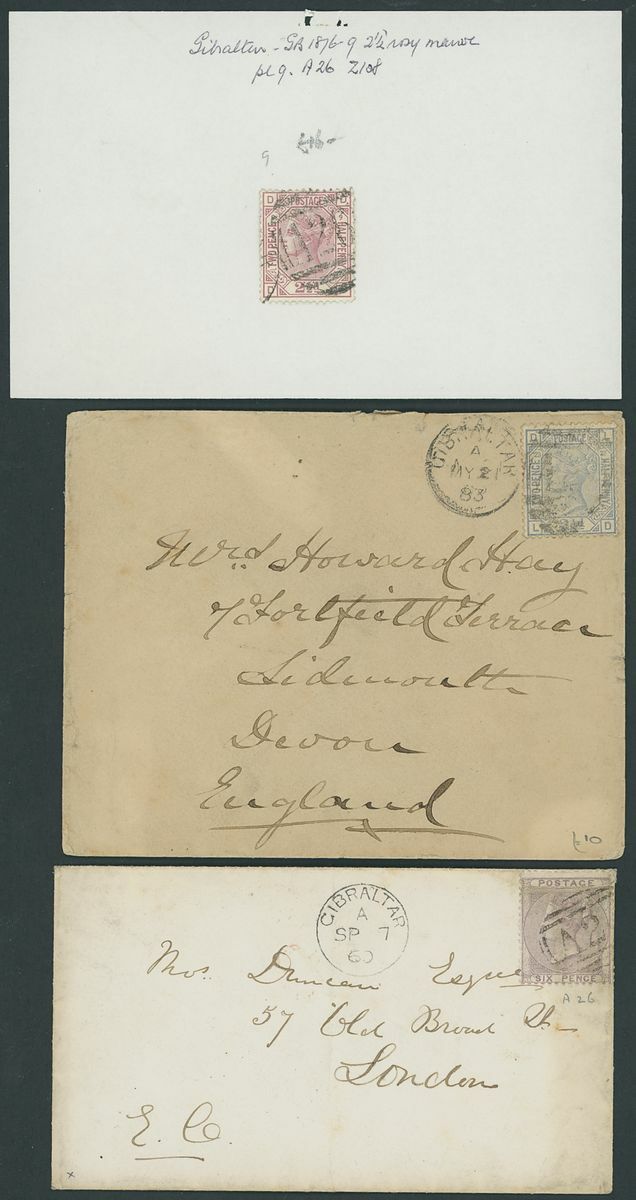 Gibraltar - GB 1876-9 2½ rosy mauve
pl 9. A26 Z108
9
D POSTAGE D
TWO PENCE
HALFPENNY
D
GIBRALTAR
A
MY 21
83
D POSTAGE L
TWO PENCE
L D
Mrs Howard Hay
7 Fortfield Terrace
Sidmouth
Devon
England
£10
GIBRALTAR
A
SP 7
60
POSTAGE
A2
SIX PENCE
A26
Thos. Duncan Esq
57 Old Broad St
London
E.C.
x